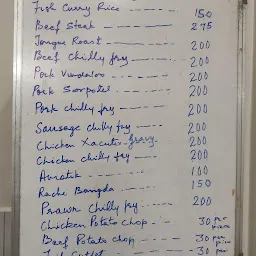 Fish Curry Rice ------- 150
Beef Steak ------- 275
Tongue Roast ------- 200
Beef Chilly fry ------- 200
Pork Vindaloo ------- 200
Pork Sorpotel ------- 200
Pork chilly fry ------- 200
Sausage chilly fry ------- 200
Chicken Xacuti-Gravy ------- 200
Chicken chilly fry ------- 200
100
Bangda ------- 150
Prawn Chilly fry ------- 200
Chicken Potato Chop ------- 30 per piece
Beef Potato Chop ------- 30 per piece
30 per